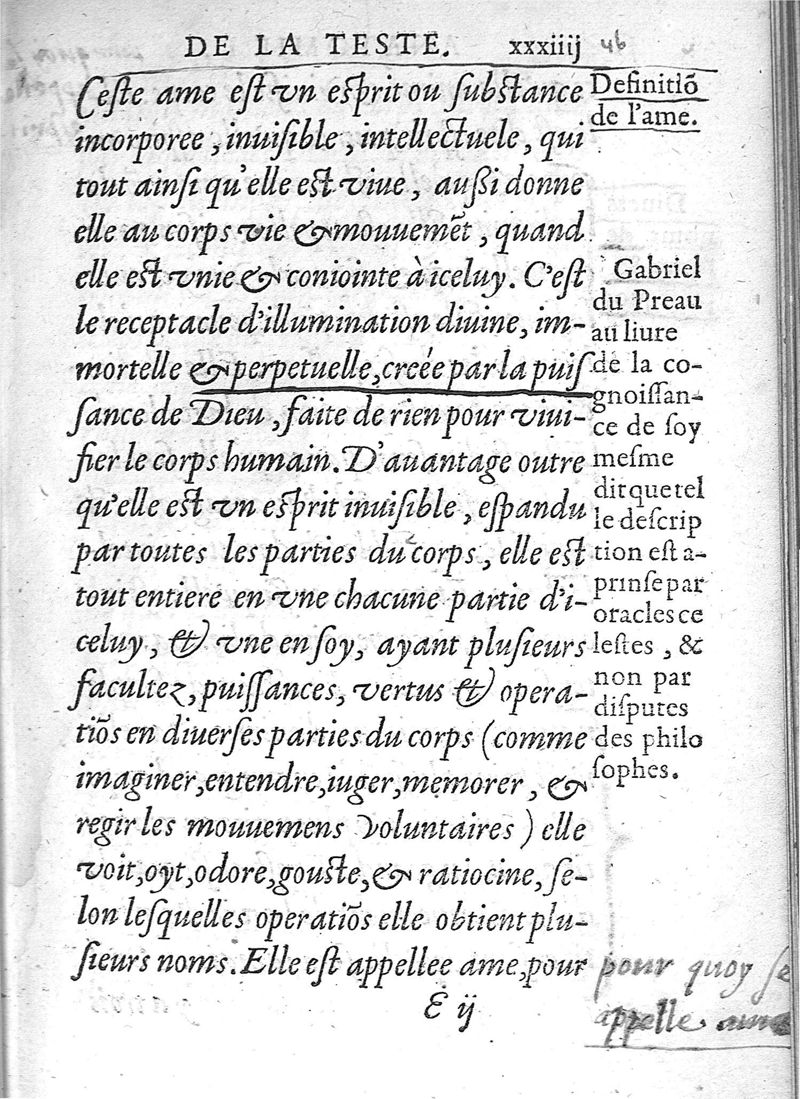 DE LA TESTE. xxxiiij 46
Ceste ame est vn esprit ou substance
incorporee, inuisible, intellectuele, qui
tout ainsi qu'elle est viue, aussi donne
elle au corps vie & mouuemēt, quand
elle est vnie & coniointe à iceluy. C'est
le receptacle d'illumination diuine, im-
mortelle & perpetuelle, creée par la puis
sance de Dieu, faite de rien pour viui-
fier le corps humain. D'auantage outre
qu'elle est vn esprit inuisible, espandu
par toutes les parties du corps, elle est
tout entiere en vne chacune partie d'i-
celuy, & vne en soy, ayant plusieurs
facultez, puissances, vertus & opera-
tiōs en diuerses parties du corps (comme
imaginer, entendre, iuger, memorer, &
regir les mouuemens voluntaires) elle
voit, oyt, odore, gouste, & ratiocine, se-
lon lesquelles operatiōs elle obtient plu-
sieurs noms. Elle est appellee ame, pour
E ij
Definitiō
de l'ame.
Gabriel
du Preau
au liure
de la co-
gnoissan-
ce de soy
mesme
dit que tel
le descrip
tion est a-
prinse par
oracles ce
lestes, &
non par
disputes
des philo
sophes.
pour quoy se
appelle ame